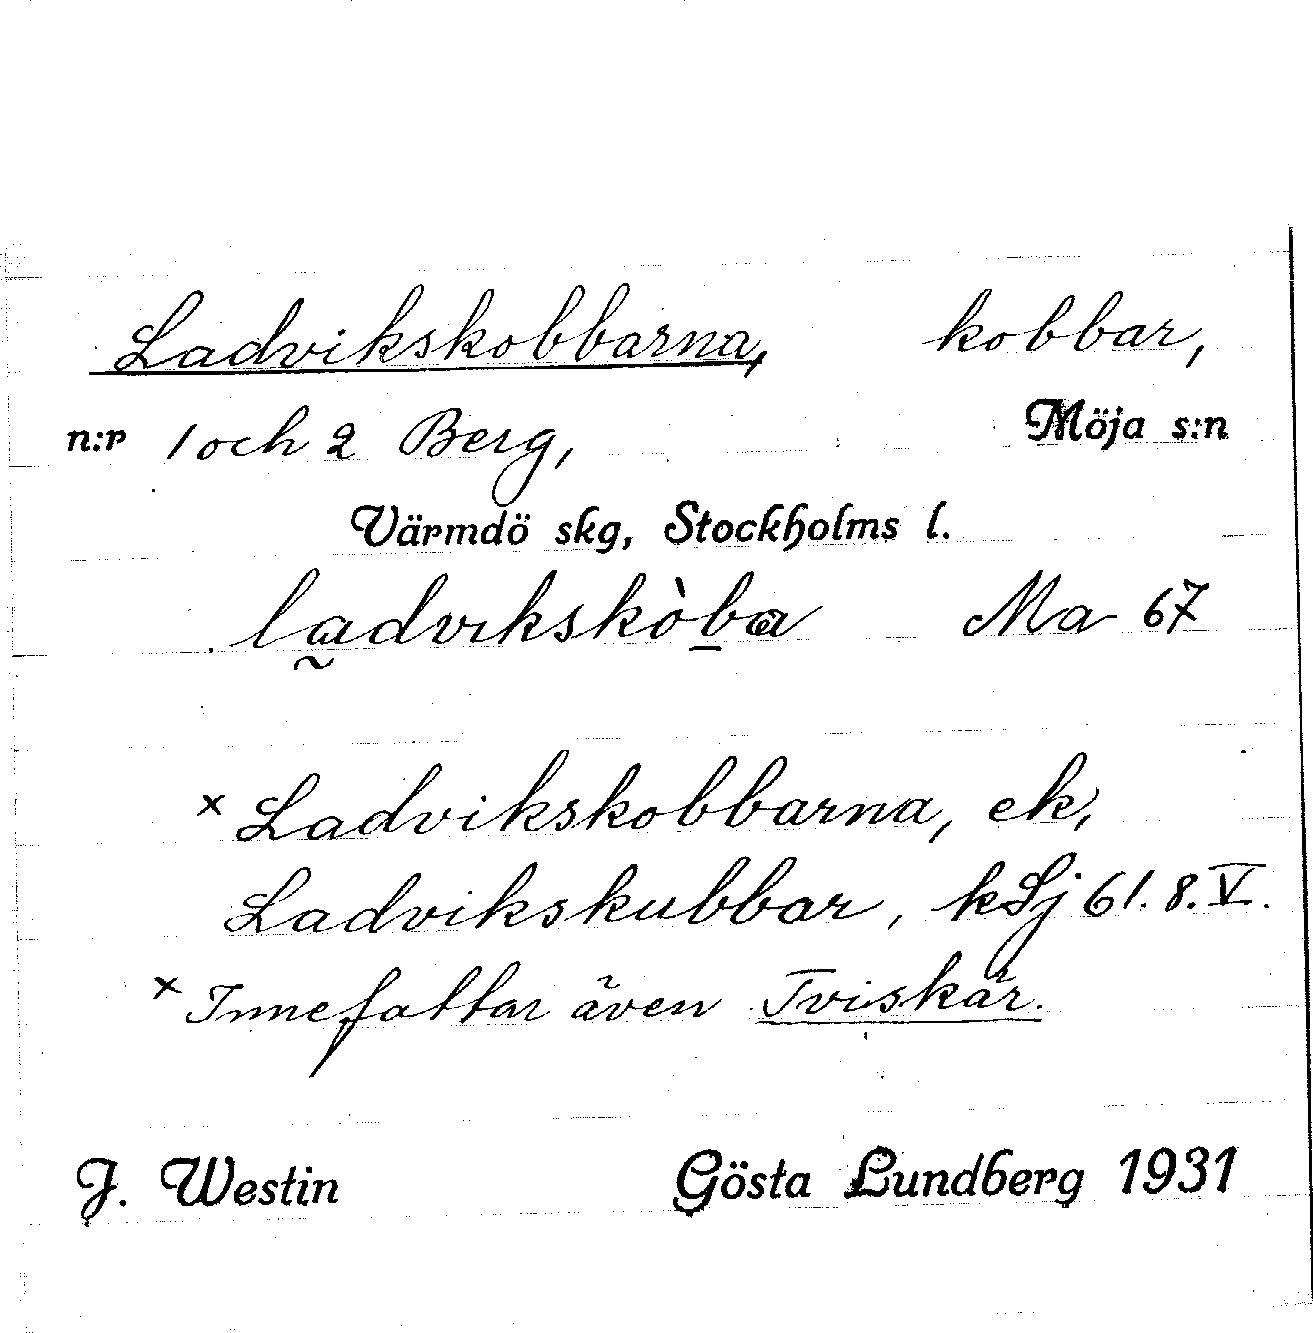 Ladvikskobbarna, kobbar,
n:r 1 och 2 Berg, Möja s:n
Värmdö skg, Stockholms l.
Ma 67
x Ladvikskobbarna, ek,
Ladvikskubbar, kSj 61. 8. V.
x Innefattar även Tviskär.
J. Westin Gösta Lundberg 1931